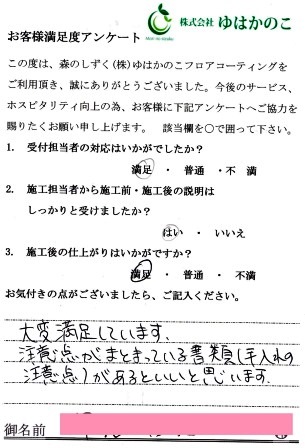 株式会社 ゆはかのこ
お客様満足度アンケート
この度は、森のしずく(株)ゆはかのこフロアコーティングを
ご利用頂き、誠にありがとうございました。今後のサービス、
ホスピタリティ向上の為、お客様に下記アンケートへご協力を
賜りたくお願い申し上げます。 該当欄を○で囲って下さい。
1. 受付担当者の対応はいかがでしたか?
満足 ・ 普通 ・ 不満
2. 施工担当者から施工前・施工後の説明は
しっかりと受けましたか?
はい ・ いいえ
3. 施工後の仕上がりはいかがですか?
満足 ・ 普通 ・ 不満
お気付きの点がございましたら、ご記入ください。
大変満足しています、
注意点がまとまっている書類(手入れの
注意点)があるといいと思います。
御名前